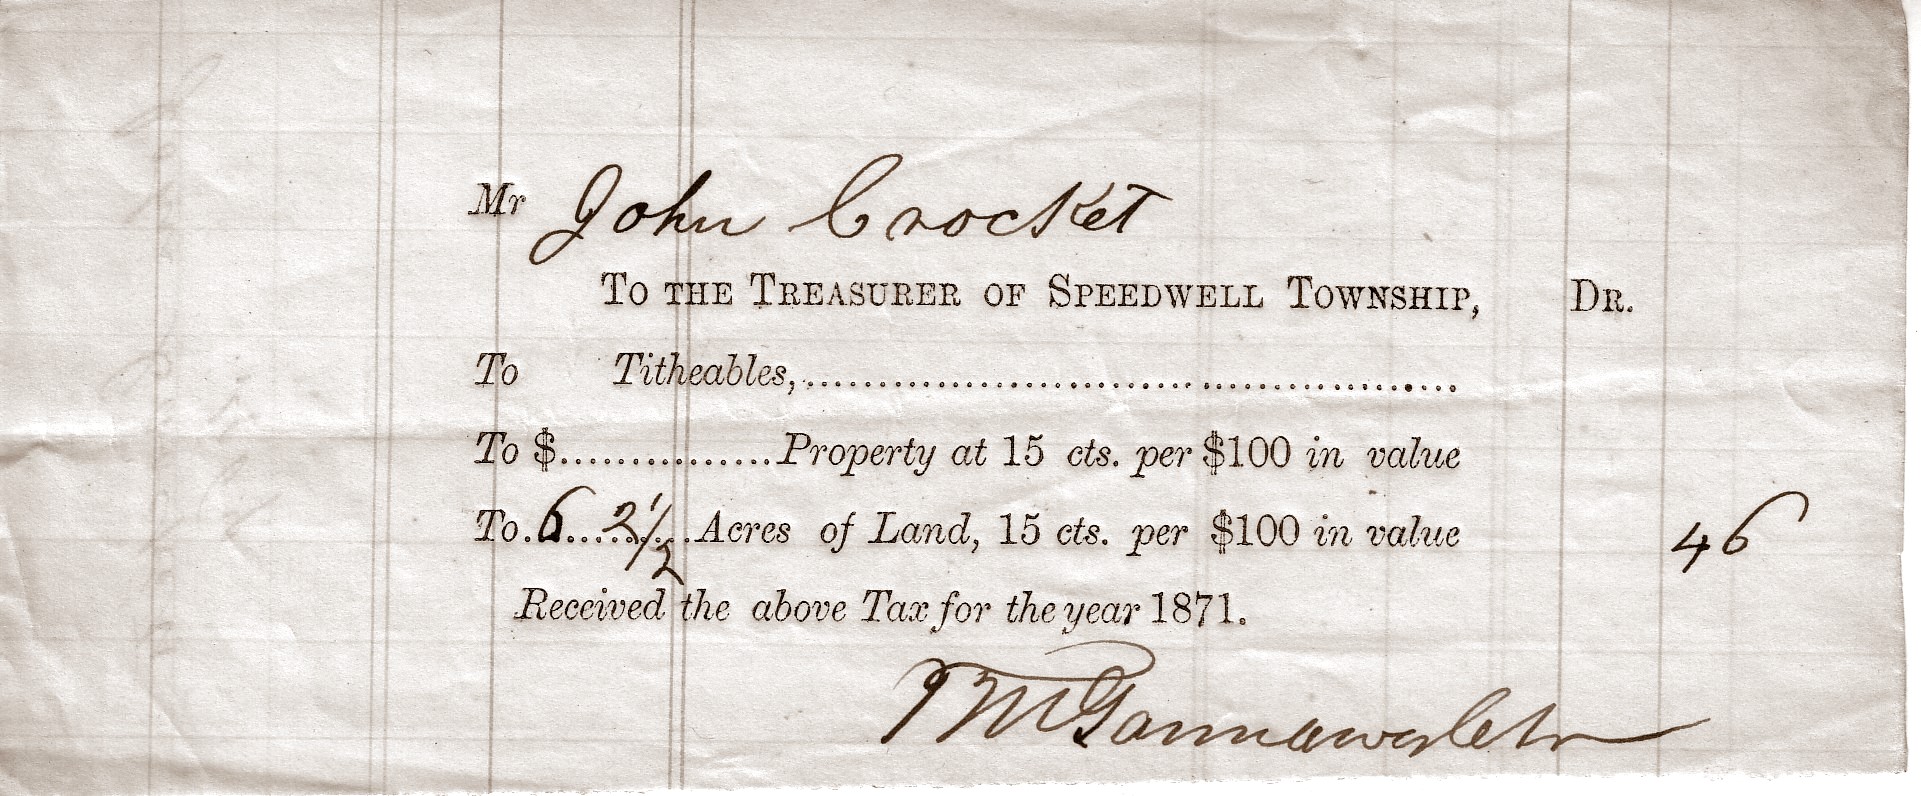 Mr John Crocket
TO THE TREASURER OF SPEEDWELL TOWNSHIP, DR.
To Titheables,................................................
To $...............Property at 15 cts. per $100 in value
To.6...2 1/2..Acres of Land, 15 cts. per $100 in value 46
Received the above Tax for the year 1871.